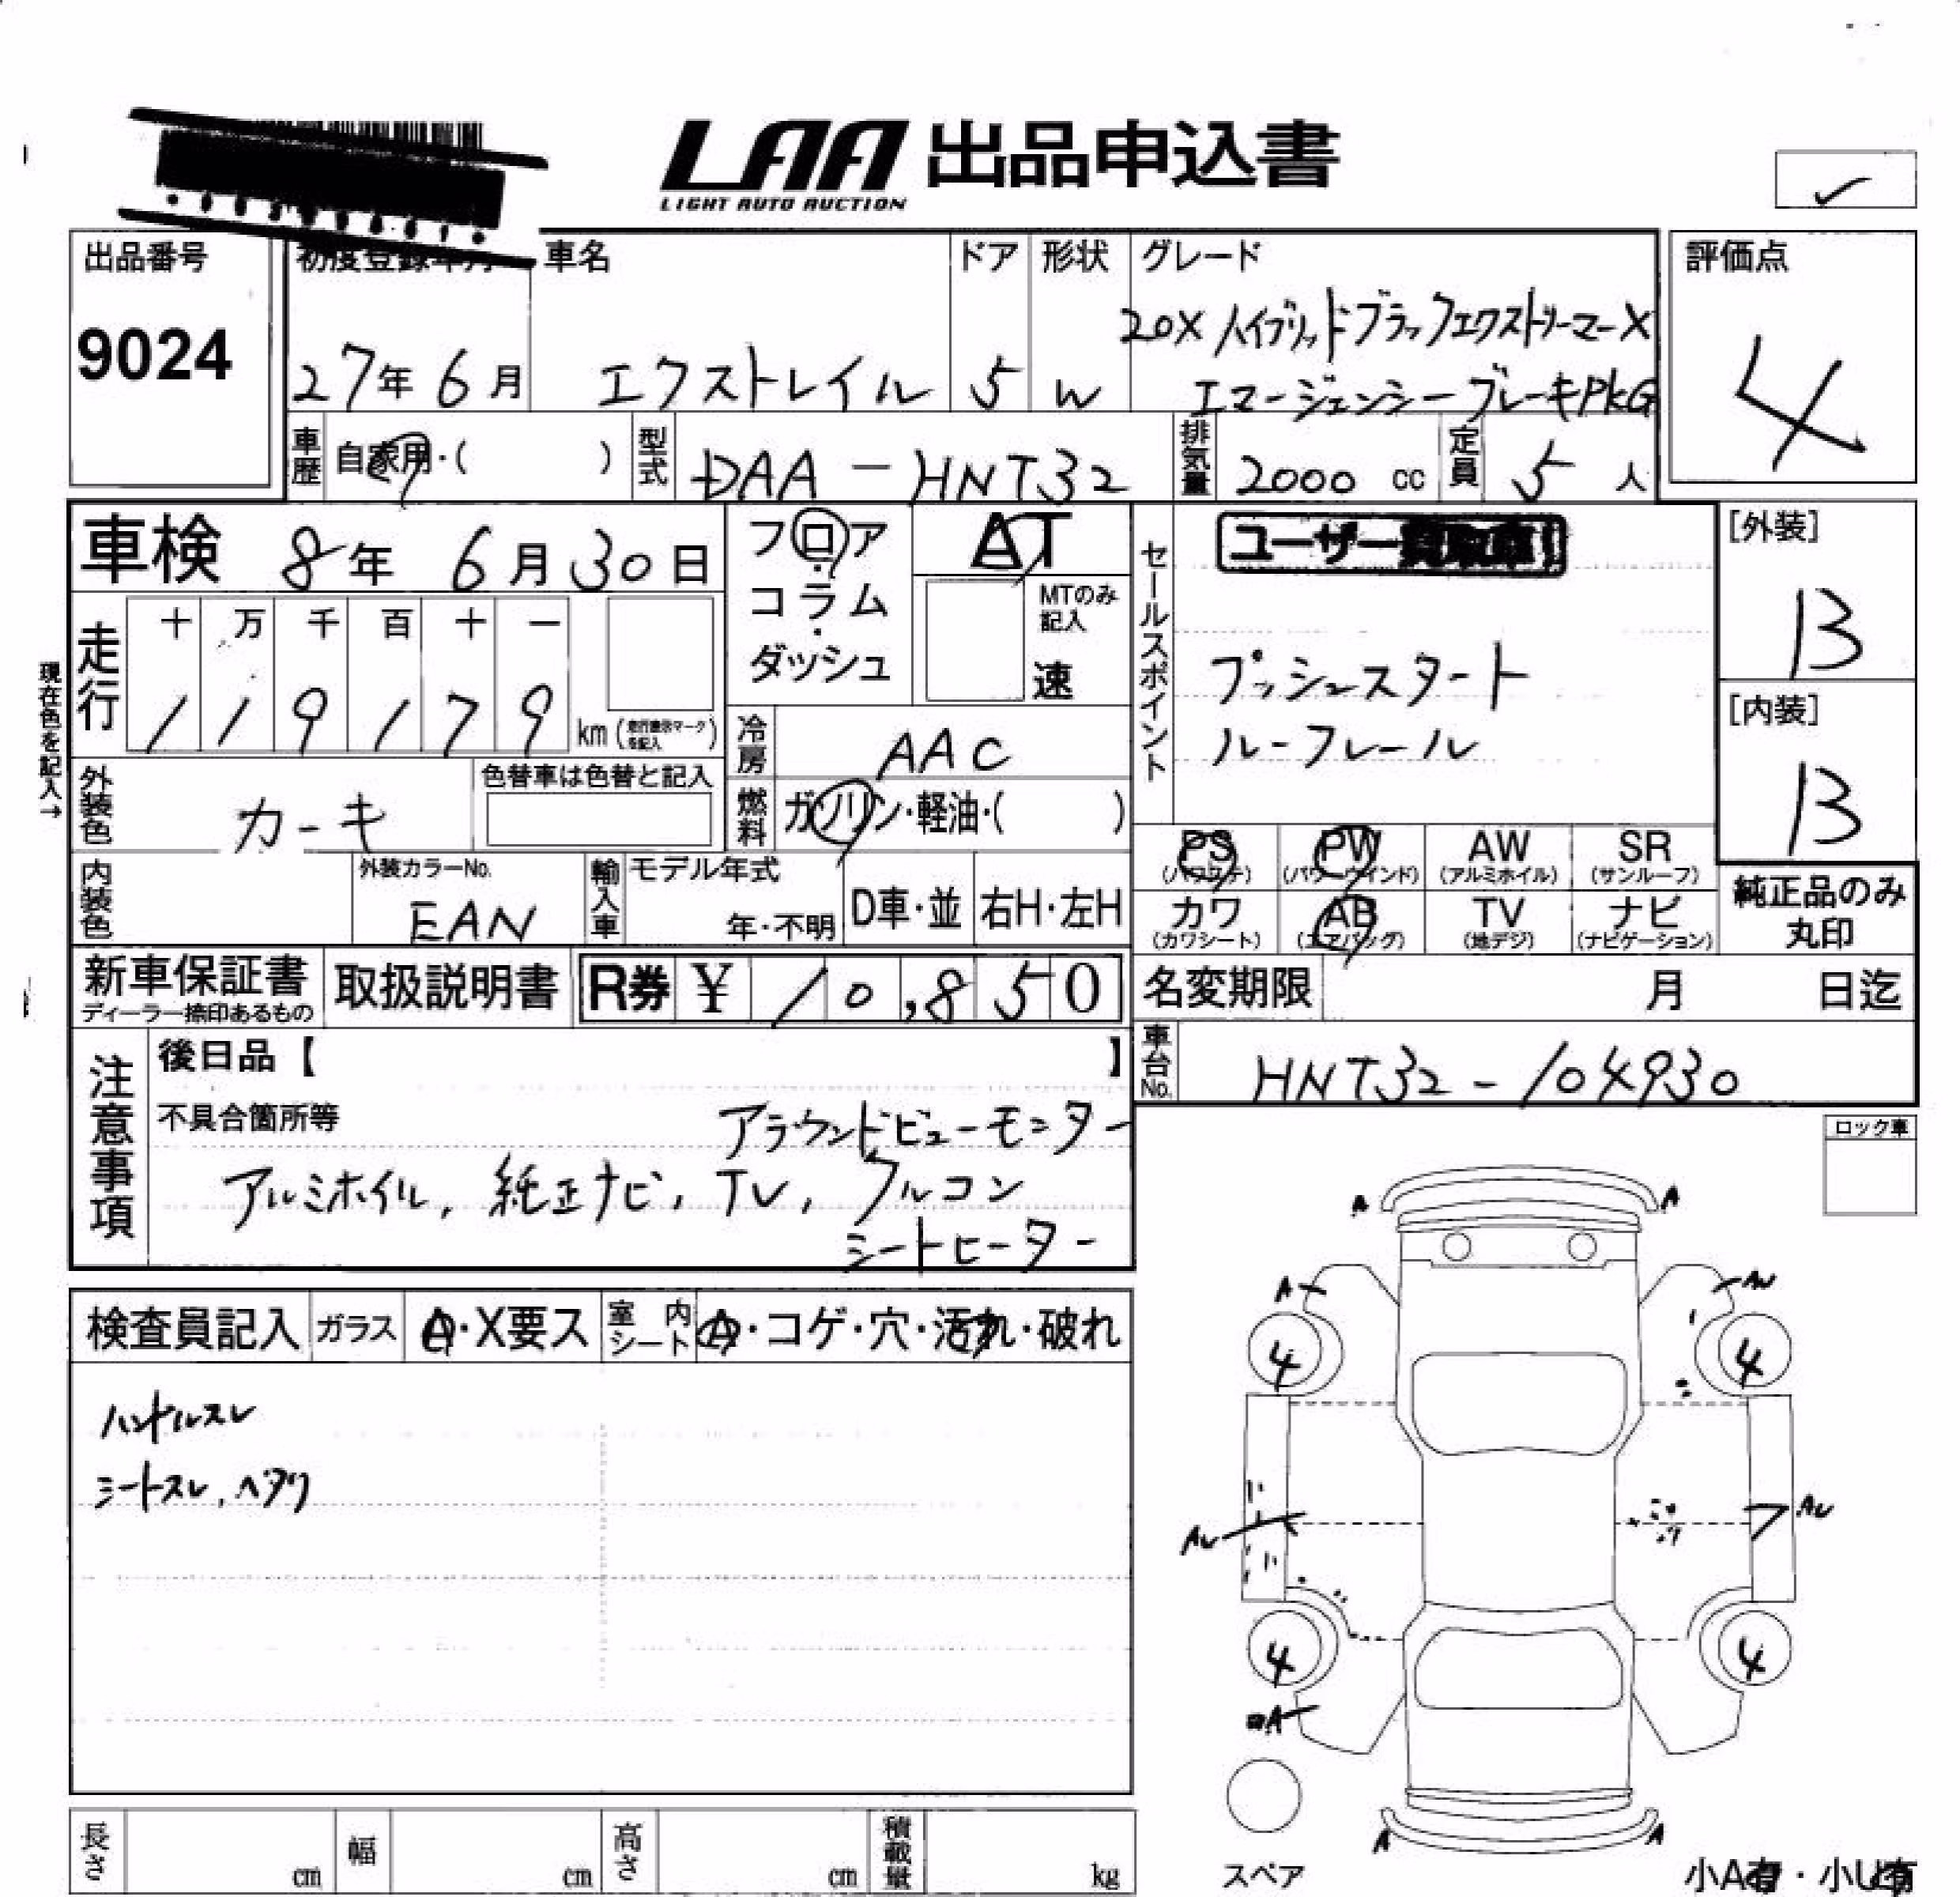 LAA 出品申込書
LIGHT AUTO AUCTION
出品番号 初度登録年月 車名 ドア 形状 グレード 評価点
9024 27年6月 エクストレイル 5 W 20X ハイブリッドブラックエクストリーマーX 4
エマージェンシーブレーキPkG
車歴 自家用・( ) 型式 DAA-HNT32 排気量 2000 cc 定員 5 人
車検 8年 6月30日 フロア・コラム・ダッシュ AT
MTのみ記入 速
セールスポイント ユーザー買取車!
プッシュスタート
ルーフレール
[外装] B
[内装] B
現在色を記入→
走行 十 万 千 百 十 一
1 1 9 1 7 9 km (走行表示マークを記入)
冷房 AAC
外装色 カーキ 色替車は色替と記入
燃料 ガソリン・軽油・( )
PS (パワステ) PW (パワーウインド) AW (アルミホイル) SR (サンルーフ)
カワ (カワシート) AB (エアバッグ) TV (地デジ) ナビ (ナビゲーション)
純正品のみ
丸印
内装色 外装カラーNo. EAN 輸入車 モデル年式 年・不明 D車・並 右H・左H
新車保証書 取扱説明書 R券 ¥ 10,850 名変期限 月 日迄
ディーラー捺印あるもの
車台No. HNT32-104930
注意事項 後日品【 】
不具合箇所等 アラウンドビューモニター
アルミホイル, 純正ナビ, TV, クルコン
シートヒーター
ロック車
検査員記入 ガラス A・X要ス 室内シート A・コゲ・穴・汚れ・破れ
ハンドルスレ
シートスレ, ヘタリ
A A
A AU
4 4
AU AU
4 4
A
A A
スペア
小A有・小U有
長さ cm 幅 cm 高さ cm 積載量 kg